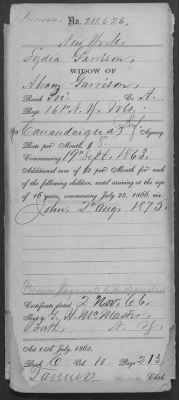 No. 211,626.
New York
Lydia Garrison,
WIDOW OF
Abram Garrison,
Rank Pri Co. A.
Regt. 161st N.Y. Vols.
Canandaigua Agency
Rate per Month, $8
Commencing 19th Sept. 1863.
Additional sum of $2 per Month for each
of the following children, until arriving at the age
of 16 years, commencing July 25, 1866, viz:
John 2d Aug. 1873.
Certificate dated 2 Nov. 66.
Sent to G. H. McMaster,
Bath, N. Y.
Act 14th July, 1862.
Book Vol. 10 Page 213
Clerk.